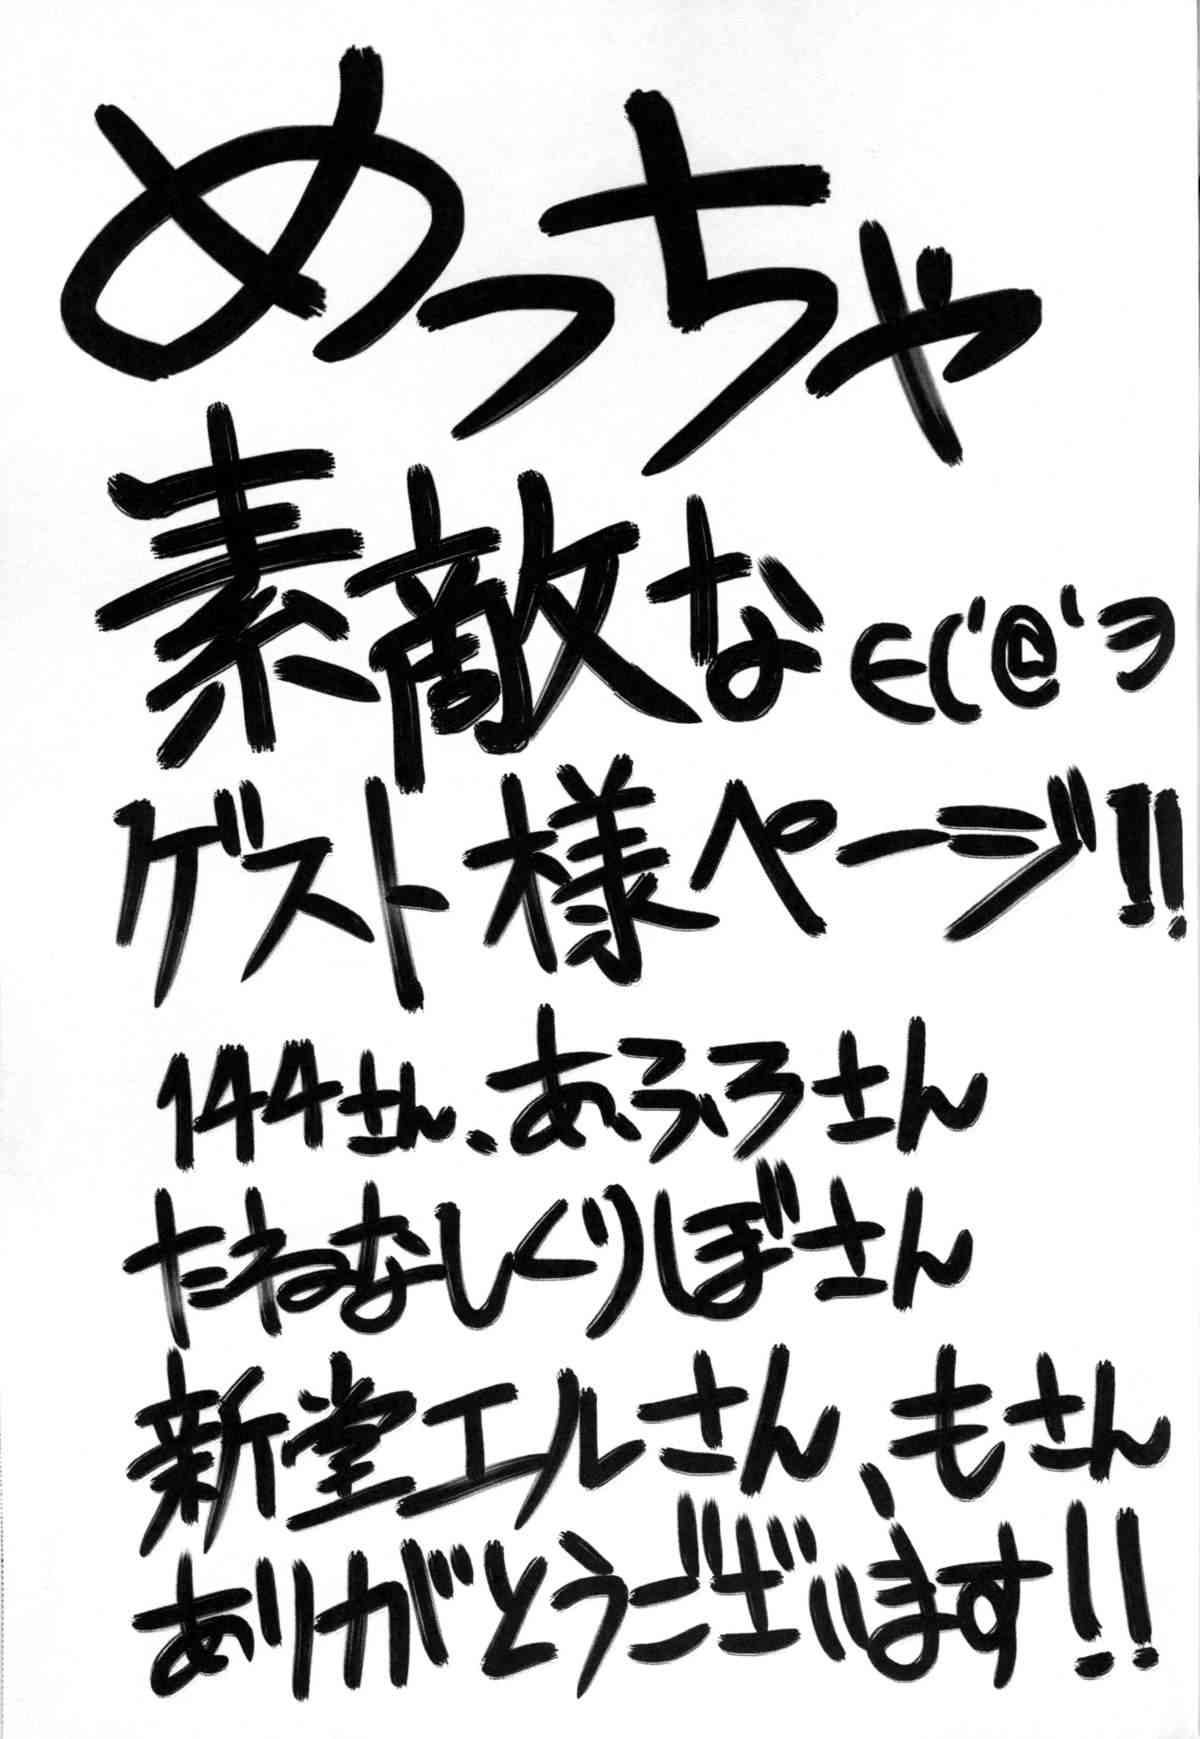 めっちゃ
素敵な∈('@'ヨ
ゲスト様ページ!!
144さん、あふろさん
たねなしくりぼさん
新堂エルさん、もさん
ありがとうございます!!